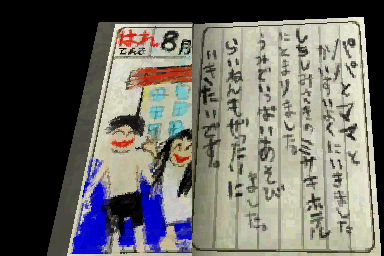 はれ
てんき
8月
パパとママと
かいすいよくにいきました
しきしみさきのミサキホテル
にとまりました。
うみでいっぱいあそび
ました。
らいねんもぜったいに
いきたいです。